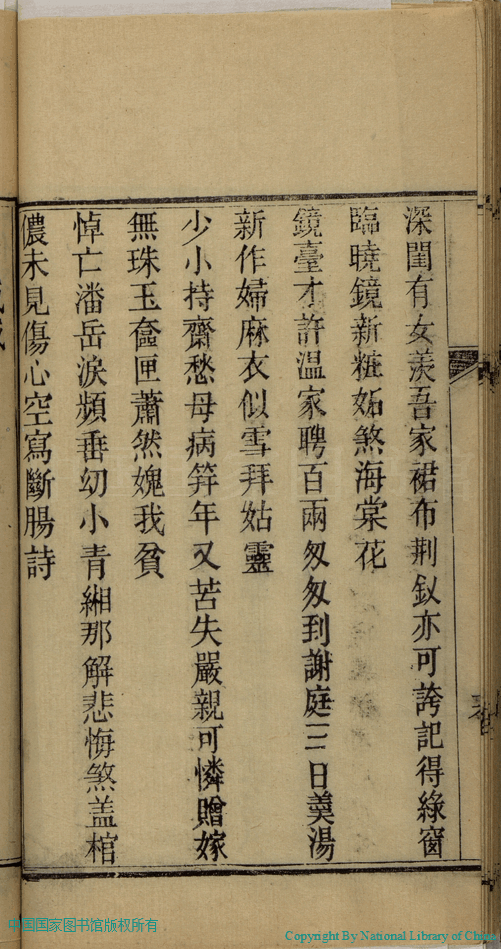 深閨有女羡吾家裙布荆釵亦可誇記得綠窗
臨曉鏡新粧妬煞海棠花
鏡臺才許温家聘百兩匆匆到謝庭三日羹湯
新作婦麻衣似雪拜姑靈
少小持齋愁母病笄年又苦失嚴親可憐贈嫁
無珠玉奩匣蕭然媿我貧
悼亡潘岳淚頻垂幼小青緗那解悲悔煞盖棺
儂未見傷心空寫斷腸詩
中国国家图书馆版权所有
Copyright By National Library of China